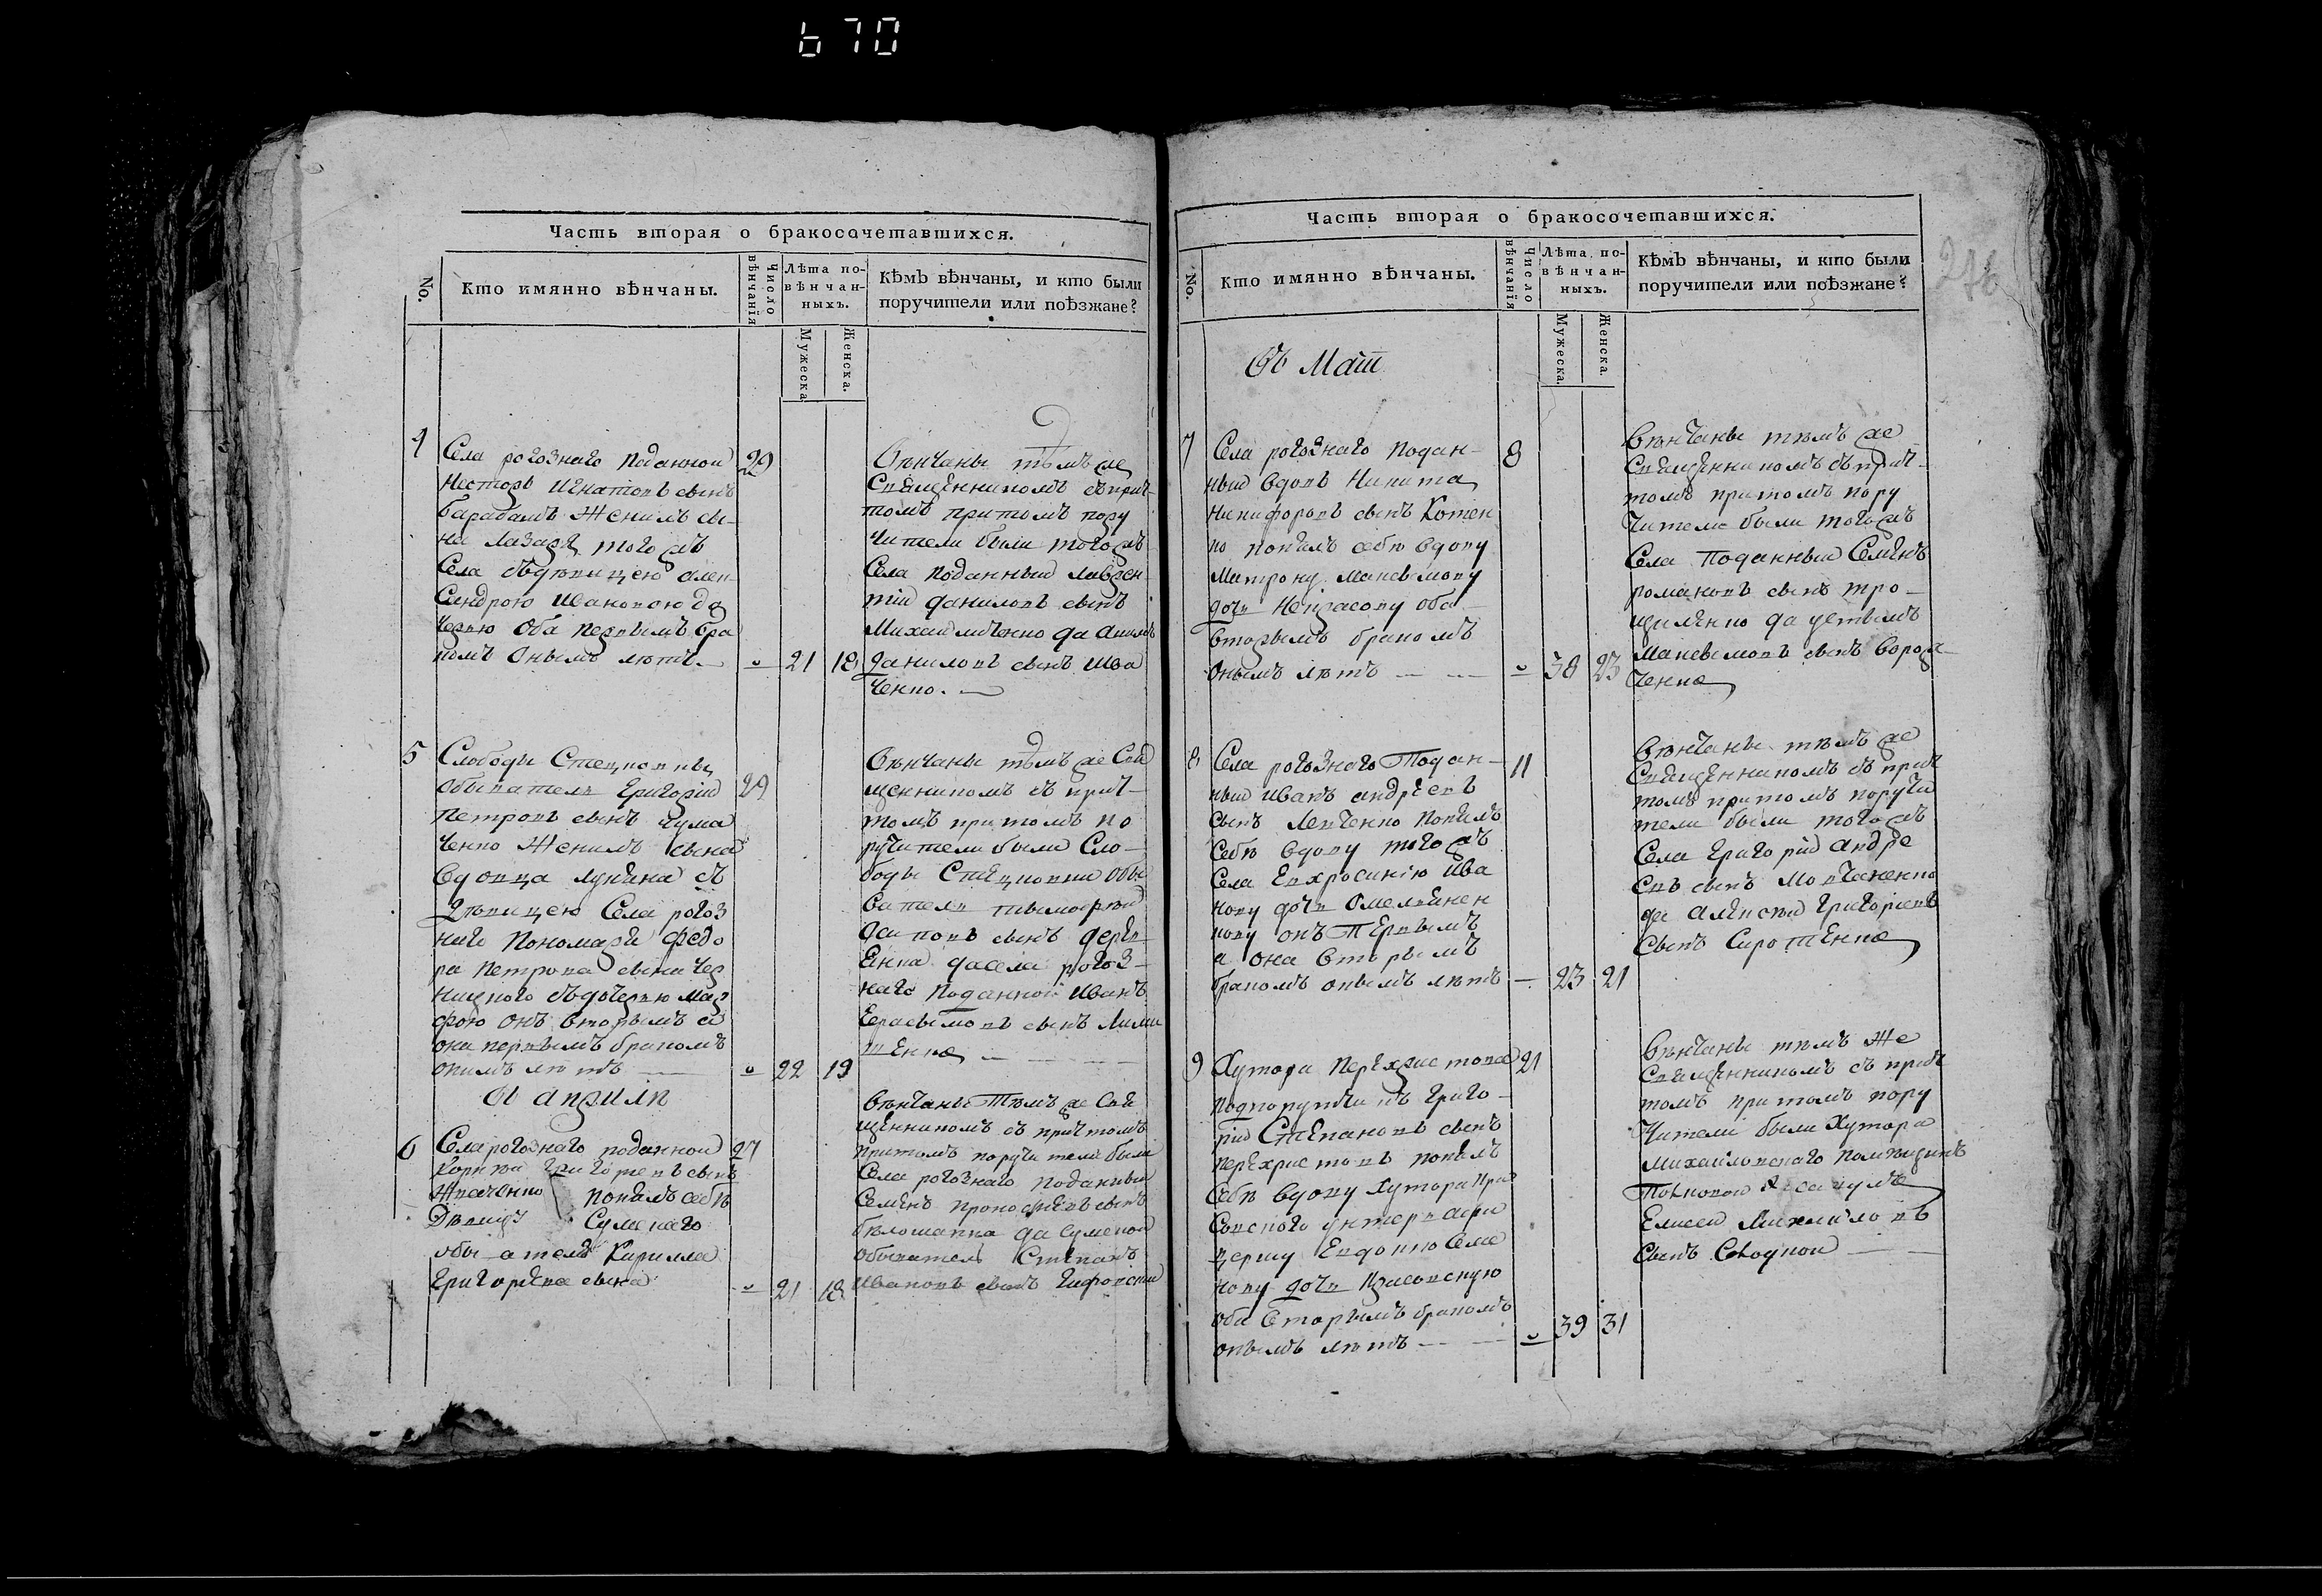 670
Часть вторая о бракосочетавшихся.
No.
Кто имянно вѣнчаны.
Число вѣнчанія
Лѣта повѣнчанныхъ.
Кѣмъ вѣнчаны, и кто были
поручители или поѣзжане?
Мужеска
Женска.
4
Села рогознаго поданной
Несторъ Игнатовъ сынъ
барабашъ Женилъ сы-
на Лазаря того жъ
Села съдѣвицею Алек
Сандрою Ивановою до
Черью Оба первымъ бра
комъ Онымъ лѣтъ
29
21
18
Вѣнчаны тѣмъ же
Священникомъ съ прич-
томъ притомъ пору
чители были того жъ
Села поданный Лаврен
тій Даниловъ сынъ
да
Даниловъ сынъ Ива
ченко.
5
Слободы Стецковки
Обыватель Григорій
Петровъ сынъ Чума
ченко Женилъ сына
Вдовца съ
Дѣвицею Села рогоз
наго Пономаря Федо
ра Петрова сына Чер
съдочерью Мар
фою онъ вторымъ а
она первымъ бракомъ
онымъ лѣтъ
29
22
19
Вѣнчаны тѣмъ же Свя
щенникомъ съ прич-
томъ притомъ по
ручители были Сло-
боды Стецковки Обы
ватель Тимофей
сынъ дерев
янка да села рогоз-
наго поданной Иванъ
Герасимовъ сынъ
Въ априли
6
Села рогознаго поданной
Корнѣй Григорьевъ сынъ
понялъ себѣ
Дѣвицу Сумскаго
обывателя Кирилла
Григорьева сына
27
21
18
Вѣнчаны Тѣмъ же Свя
щенникомъ съ причтомъ
притомъ поручители были
Села рогознаго поданный
Семенъ Прокофіевъ сынъ
бѣлошапка да Сумской
обыватель Степанъ
Ивановъ сынъ
Часть вторая о бракосочетавшихся.
276
No.
Кто имянно вѣнчаны.
Число вѣнчанія
Лѣта повѣнчанныхъ.
Кѣмъ вѣнчаны, и кто были
поручители или поѣзжане?
Мужеска.
Женска.
Въ Маіи
7
Села рогознаго подан-
ный вдовъ Никита
Никифоровъ сынъ Котен
ко понялъ себѣ вдову
Матрону Максимову
дочь Некрасову оба
вторымъ бракомъ
Онымъ лѣтъ
8
38
23
Вѣнчаны тѣмъ же
Священникомъ съ прич-
томъ притомъ пору
чители были того жъ
Села Поданный Семенъ
романовъ сынъ тро-
щименко да
Максимовъ сынъ
ченко
8
Села рогознаго Подан-
ный Иванъ Андреевъ
сынъ Левченко понялъ
Себѣ вдову того жъ
Села Евхросинію Ива
нову дочь Омельянен
кову онъ Первымъ
а она вторымъ
бракомъ онымъ лѣтъ
11
23
21
Вѣнчаны тѣмъ же
Священникомъ съ прич
томъ притомъ поручи
тели были того жъ
Села Григорій Андре
евъ сынъ Мовчаненко
да Алексѣй Григорьевъ
Сынъ Сиротенко
9
Хутора Перехристова
подпорутчикъ Григо-
рій Степановъ сынъ
перехристовъ понялъ
Себѣ вдову хутора
унтеръ афи
цершу Евдокію Семе
нову дочь
оба вторымъ бракомъ
онымъ лѣтъ
21
39
31
Вѣнчаны тѣмъ же
Священникомъ съ прич
томъ притомъ пору
чители были Хутора
Михайловскаго помѣщикъ
Елисей Михайловъ
Сынъ